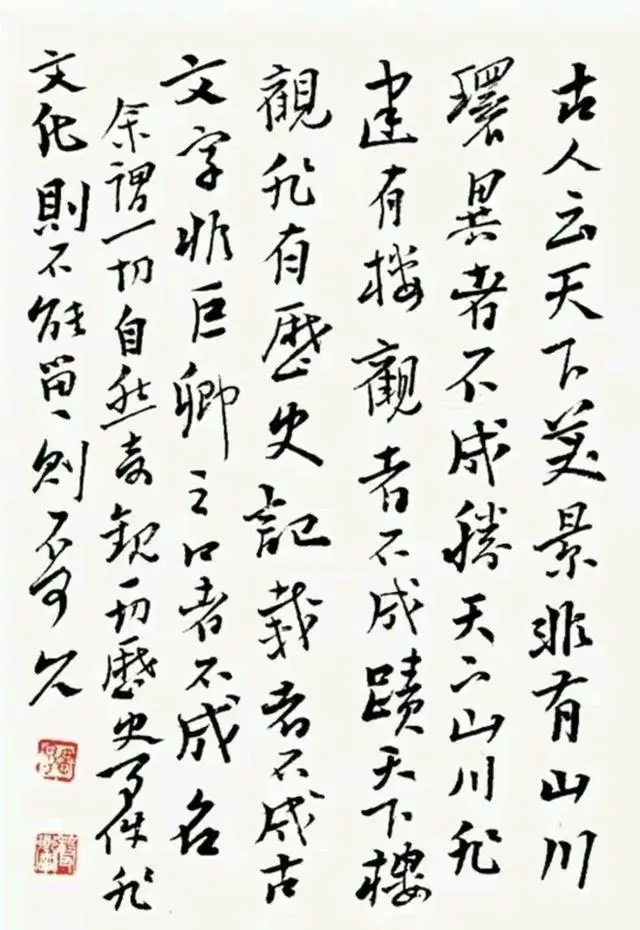 古人云天下美景非有山川
瓌異者不成勝天下山川非
建有樓觀者不成蹟天下樓
觀非有歷史記載者不成古
文字非巨卿之口者不成名
余謂一切自然奇観一切歷史事件非
文化則不能留、則不可久